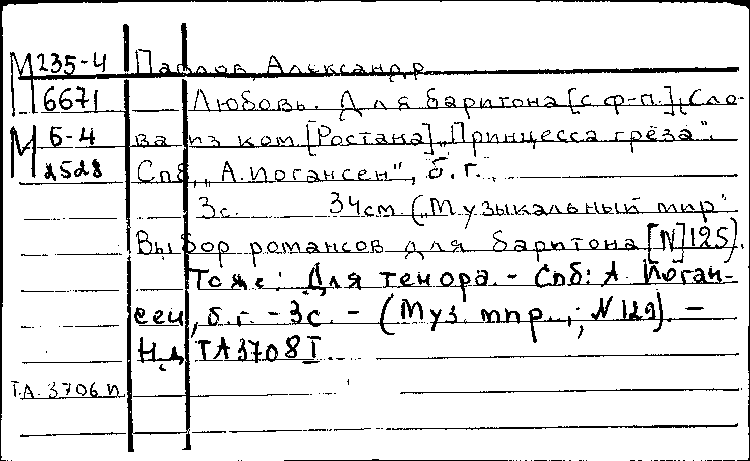 М 235-4 Павлов, Александр
6671 Любовь. Для баритона [с ф-п.]; Сло-
М Б-4 ва из ком. [Ростана] „Принцесса грёза".
2528 Спб, „А. Иогансен", б. г.
3с. 34см. („Музыкальный мир"
Выбор романсов для баритона [N] 125).
Тоже: Для тенора. - Спб: А. Йоган-
сен, б. г. - 3с. - (Муз. мир...; N 129). -
Н.д. ТА3708 I
Т.А. 3706 п